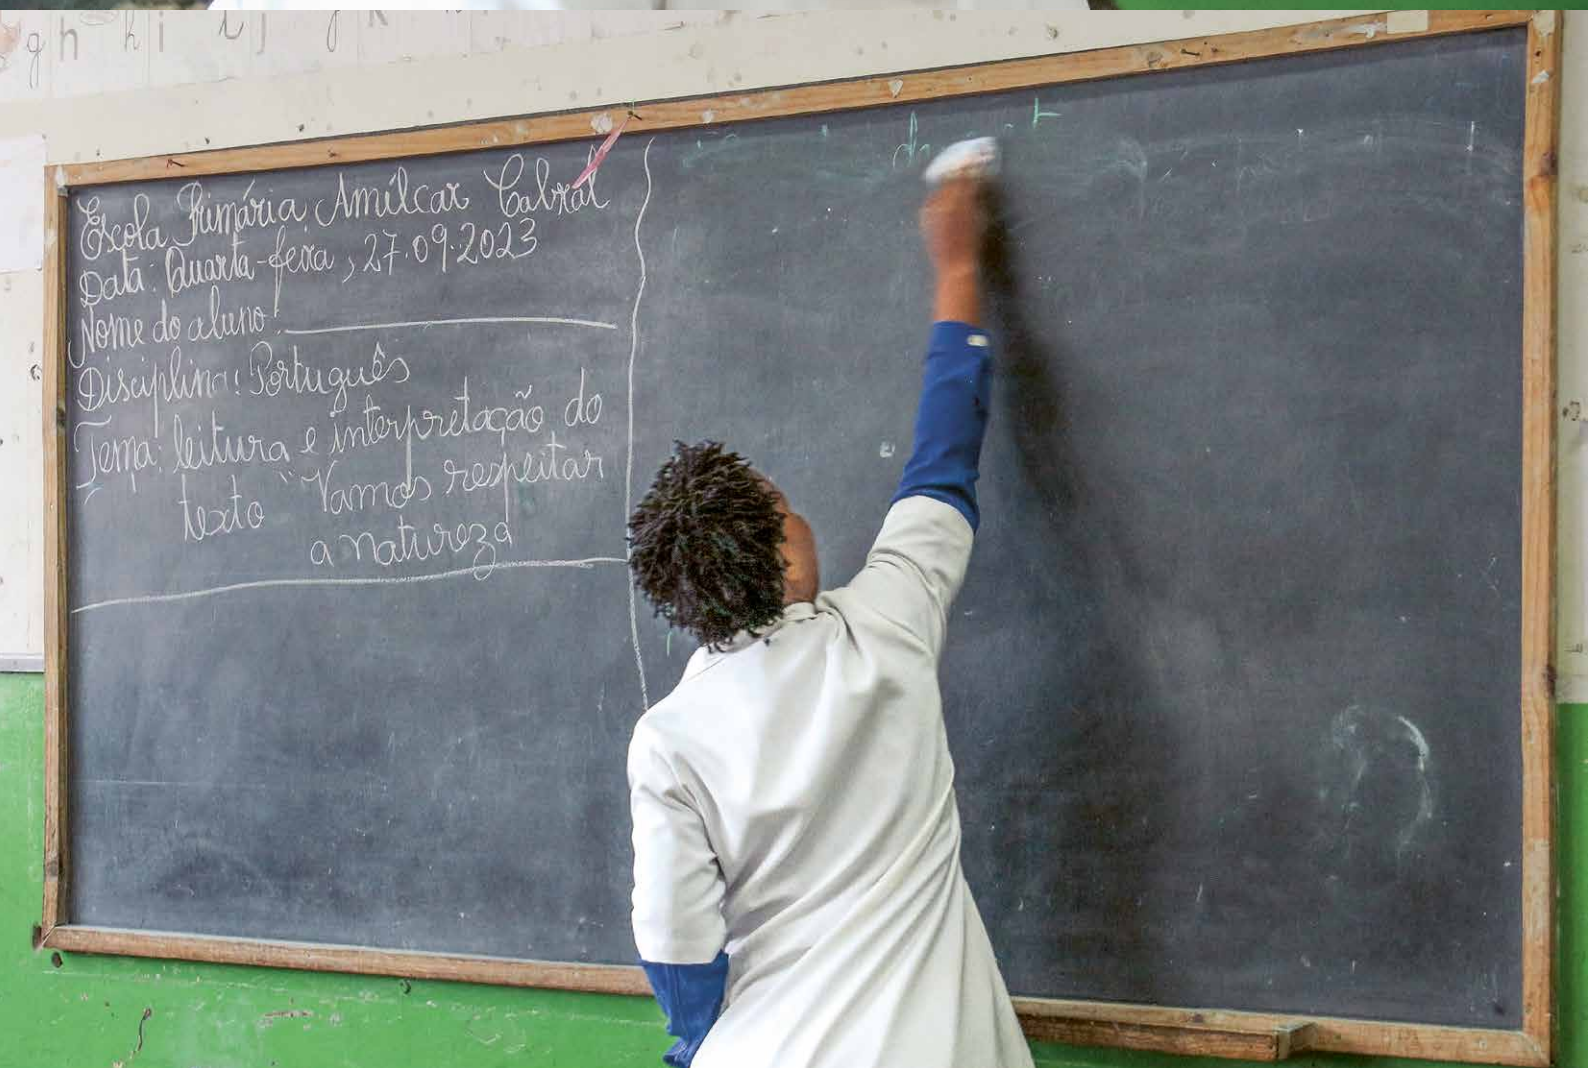 g h h i i j j k
Escola Primária Amílcar Cabral
Data: Quarta-feira, 27.09.2023
Nome do aluno:
Disciplina: Português
Tema: leitura e interpretação do
texto "Vamos respeitar
a natureza